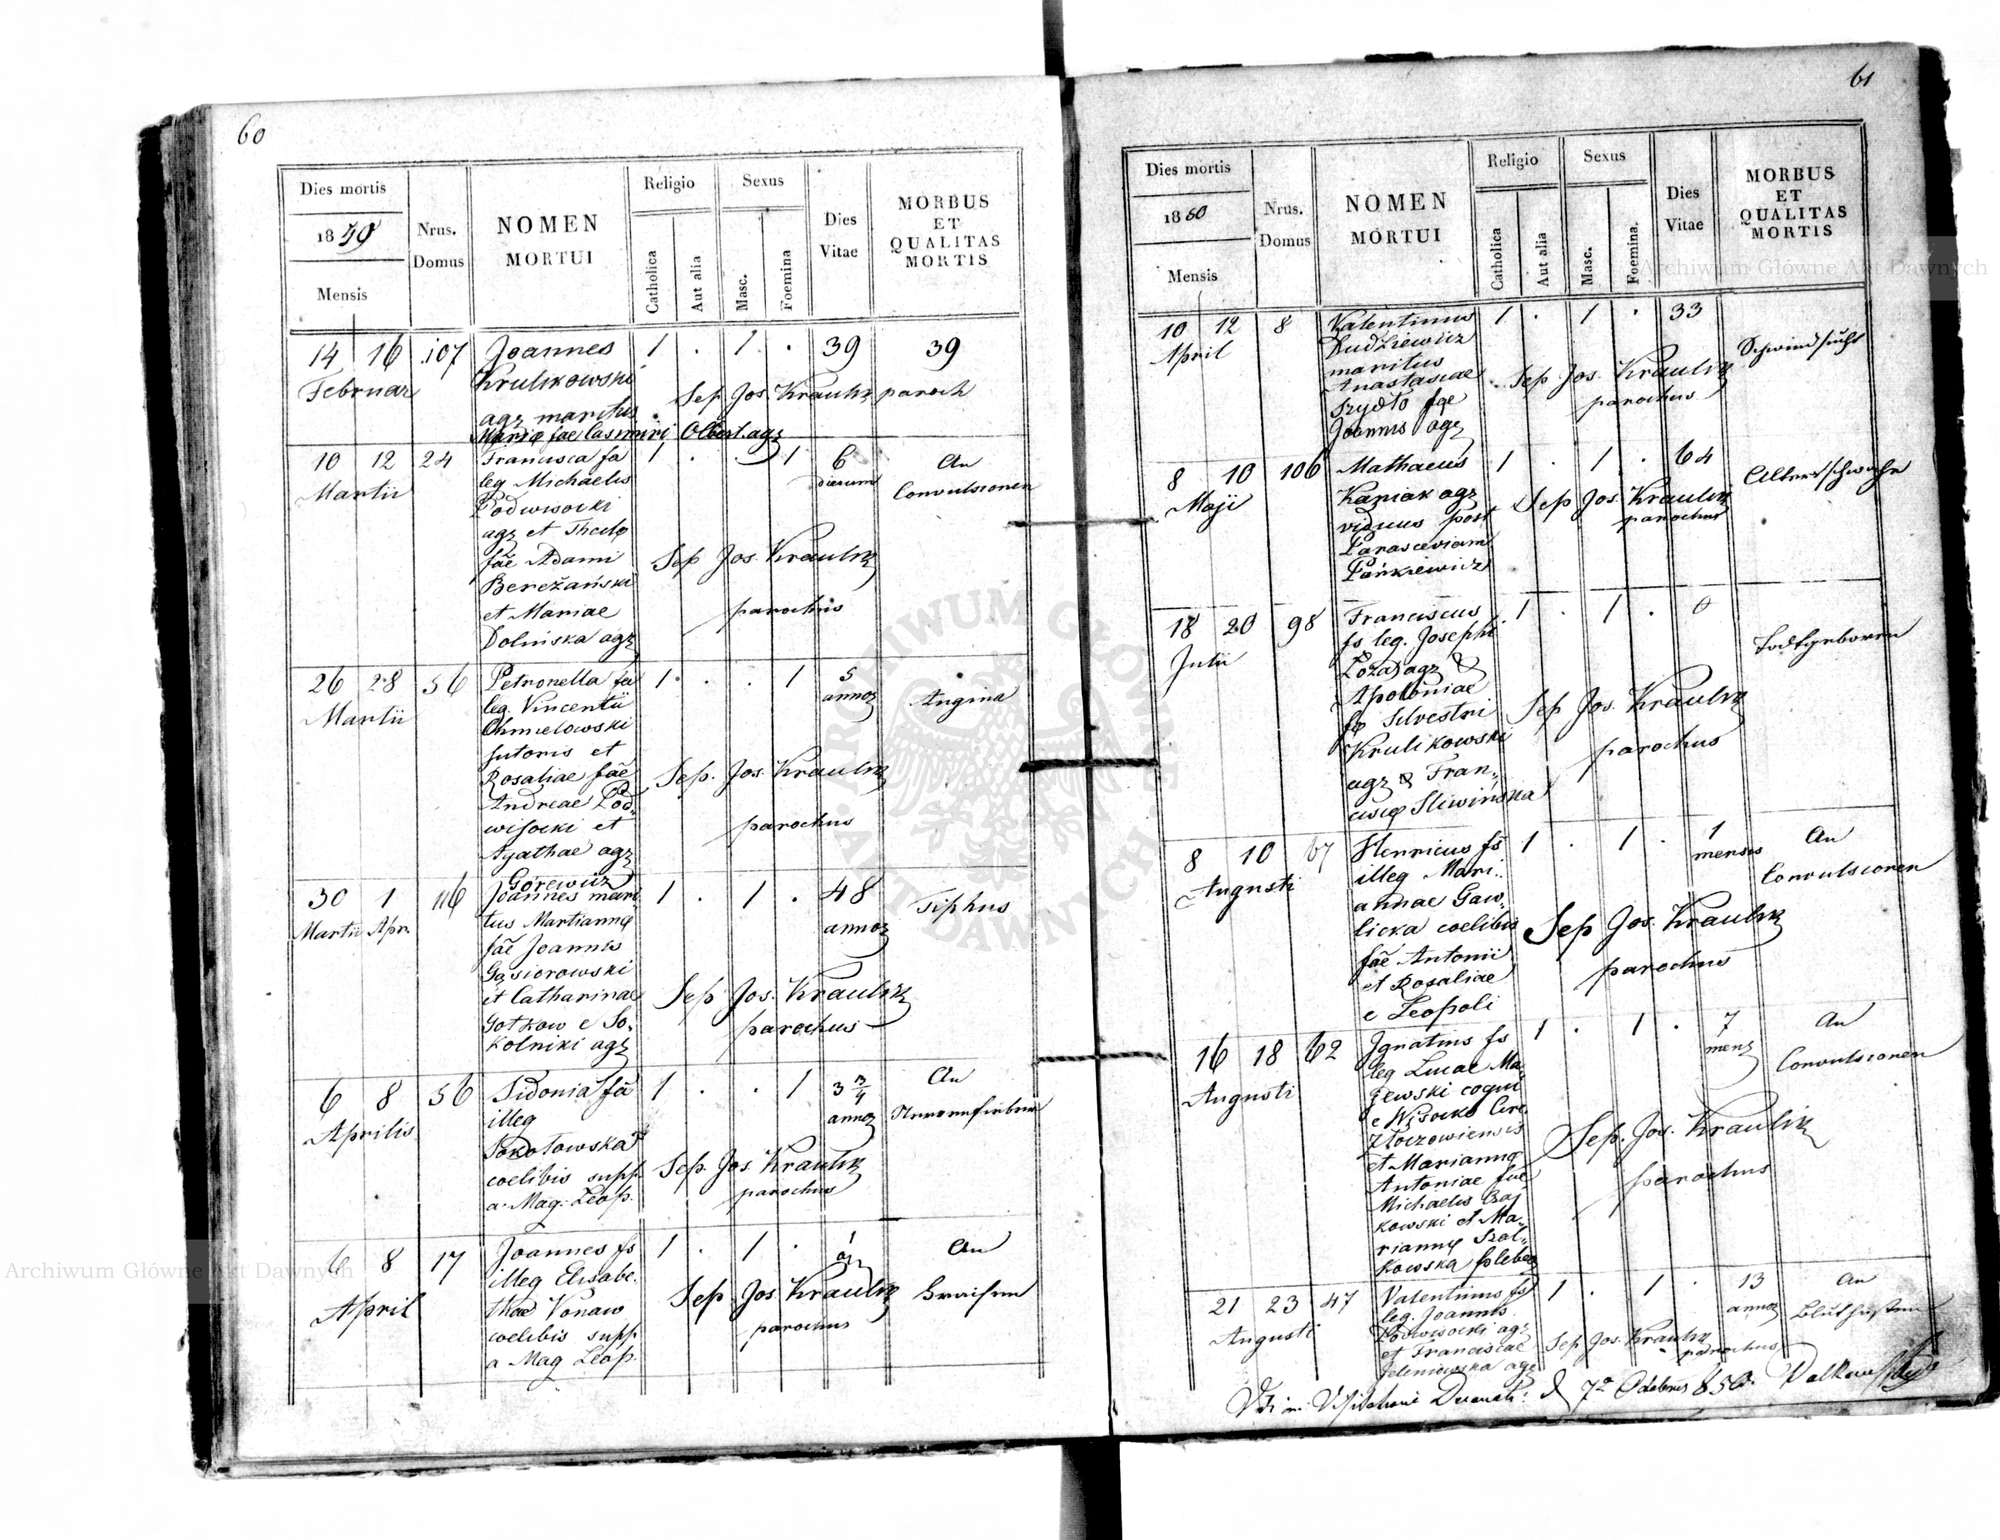 60
Dies mortis
1850
Mensis
Nrus.
Domus
NOMEN
MORTUI
Religio
Catholica
Aut alia
Sexus
Masc.
Foemina
Dies
Vitae
MORBUS
ET
QUALITAS
MORTIS
14 16 107 Joannes 1 . 1 . 39 39
Februar Krulikowski
Sep Jos. Kraulik paroch
agr maritus
Mariæ fae Casimiri Olbert agr
10 12 24 Francisca fa 1 . . 1 6 An
Martii leg Michaelis dierum Convulsionen
Podwisocki
agr et Theclæ
fae Adami Sep Jos. Kraulik
Bereżański
et Mariae parochus
Dolińska agr
26 28 56 Petronella fa 1 . . 1 5
Martii leg. Vincentii annor Angina
Chmielowski
sutoris et
Rosaliae fae Sep. Jos. Kraulik
Andreae Pod
wisocki et parochus
Agathae agr
Gorewicz
30 1 116 Joannes mari 1 . 1 . 48 Tiphus
Martii Apr. tus Martiannæ annor
fae Joannis
Gąsiorowski
et Catharinae Sep Jos. Kraulik
Gotkow e So- parochus
kolniki agr
6 8 56 Sidonia fa 1 . . 1 3 3/4 An
Aprilis illeg annor
Sokołowska
coelibis supp. Sep. Jos. Kraulik
a. Mag. Leop. parochus
6 8 17 Joannes fs 1 . 1 . 1 An
April illeg Elisabe-
thae Vonaw Sep Jos Kraulik
coelibis supp parochus
a Mag Leop.
61
Dies mortis
1850
Mensis
Nrus.
Domus
NOMEN
MORTUI
Religio
Catholica
Aut alia
Sexus
Masc.
Foemina.
Dies
Vitae
MORBUS
ET
QUALITAS
MORTIS
10 12 8 Valentinus 1 . 1 . 33
April Dudziewicz Schwindsucht
maritus
Anastasiae Sep Jos. Kraulik
Szydło fae parochus
Joannis agr
8 10 106 Mathaeus 1 . 1 . 64
Maji Kapiak agr Altersschwäche
viduus post Sep Jos Kraulik
Parasceviam parochus
Pańkiewicz
18 20 98 Franciscus 1 . 1 . 0
Julii fs leg. Josephi Todtgeboren
Łoza agr &
Apoloniae
fæ Silvestri Sep Jos. Kraulik
Krulikowski parochus
agr & Fran-
ciscæ Sliwińska
8 10 67 Henricus fs 1 . 1 . 1 An
Augusti illeg Mari- mensis Convulsionen
annae Gaw-
licka coelibis Sep Jos. Kraulik
fae Antonii parochus
et Rosaliae
e Leopoli
16 18 62 Ignatius fs 1 . 1 . 7 An
Augusti leg Lucae Ma- mens Convulsionen
zewski coqui
e Wisocko Circ.
Złoczowiensis Sep. Jos. Kraulik
et Mariannæ parochus
Antoniae fae
Michaelis Baj
kowski et Ma-
riannæ Szal-
kowska plebea
21 23 47 Valentinus fs 1 . 1 . 13 An
Augusti leg. Joannis annor
Podwisocki agr Sep Jos. Kraulik
et Franciscae parochus
Jeleniewska agr
850
Archiwum Główne Akt Dawnych
Archiwum Główne Akt Dawnych
ARCHIWUM GŁÓWNE AKT DAWNYCH